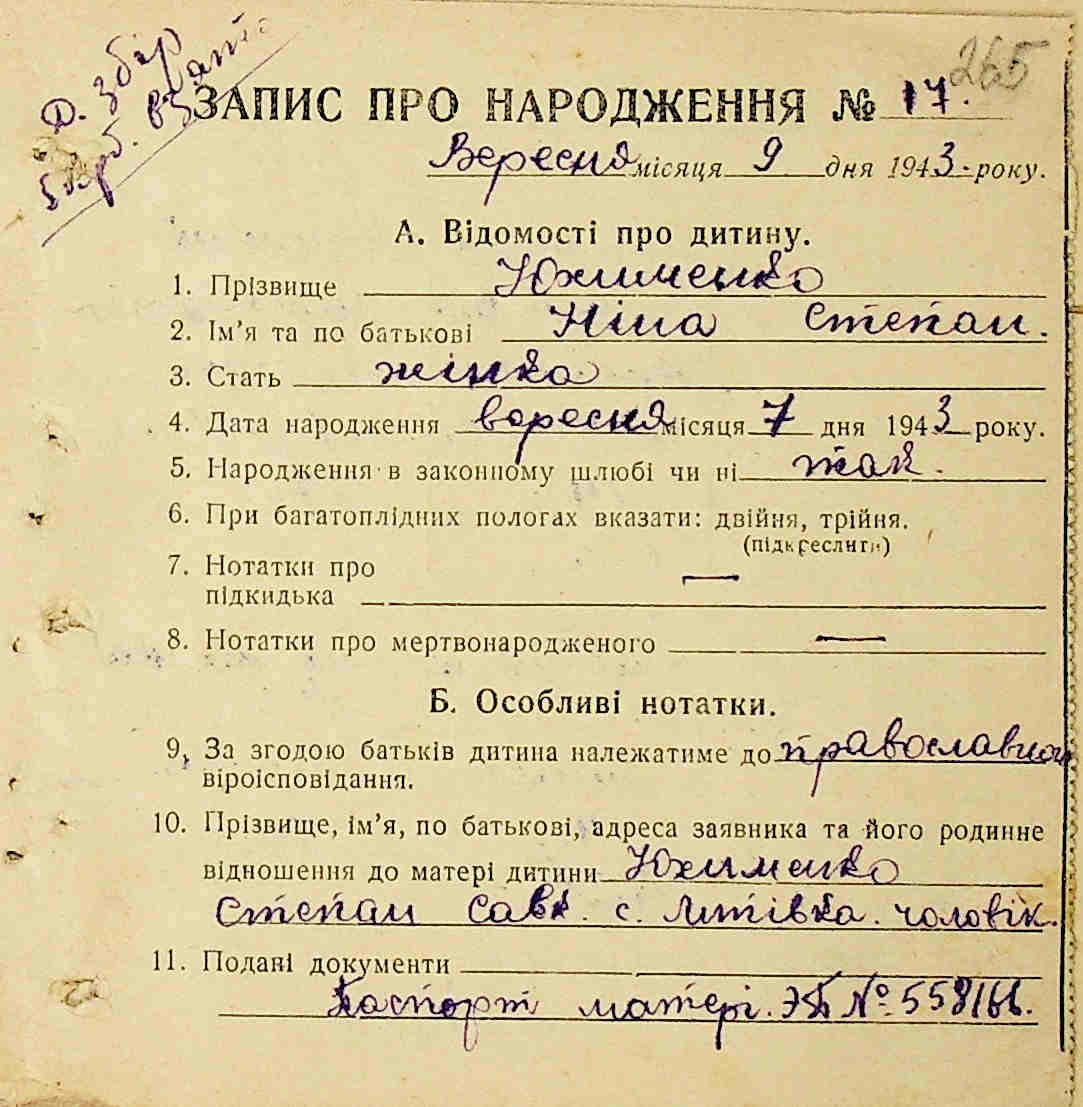 Д. збір
5 крб. взято
265
ЗАПИС ПРО НАРОДЖЕННЯ № 17.
Вересня місяця 9 дня 1943. року.
А. Відомості про дитину.
1. Прізвище Юхименко
2. Ім'я та по батькові Ніна Степан.
3. Стать жінка
4. Дата народження вересня місяця 7 дня 1943 року.
5. Народження в законному шлюбі чи ні так.
6. При багатоплідних пологах вказати: двійня, трійня.
(підкреслити)
7. Нотатки про —
підкидька
8. Нотатки про мертвонародженого —
Б. Особливі нотатки.
9. За згодою батьків дитина належатиме до православного
віроісповідання.
10. Прізвище, ім'я, по батькові, адреса заявника та його родинне
відношення до матері дитини Юхименко
Степан Сав. с. Литівка. чоловік.
11. Подані документи
Паспорт матері. ЭБ № 558166.